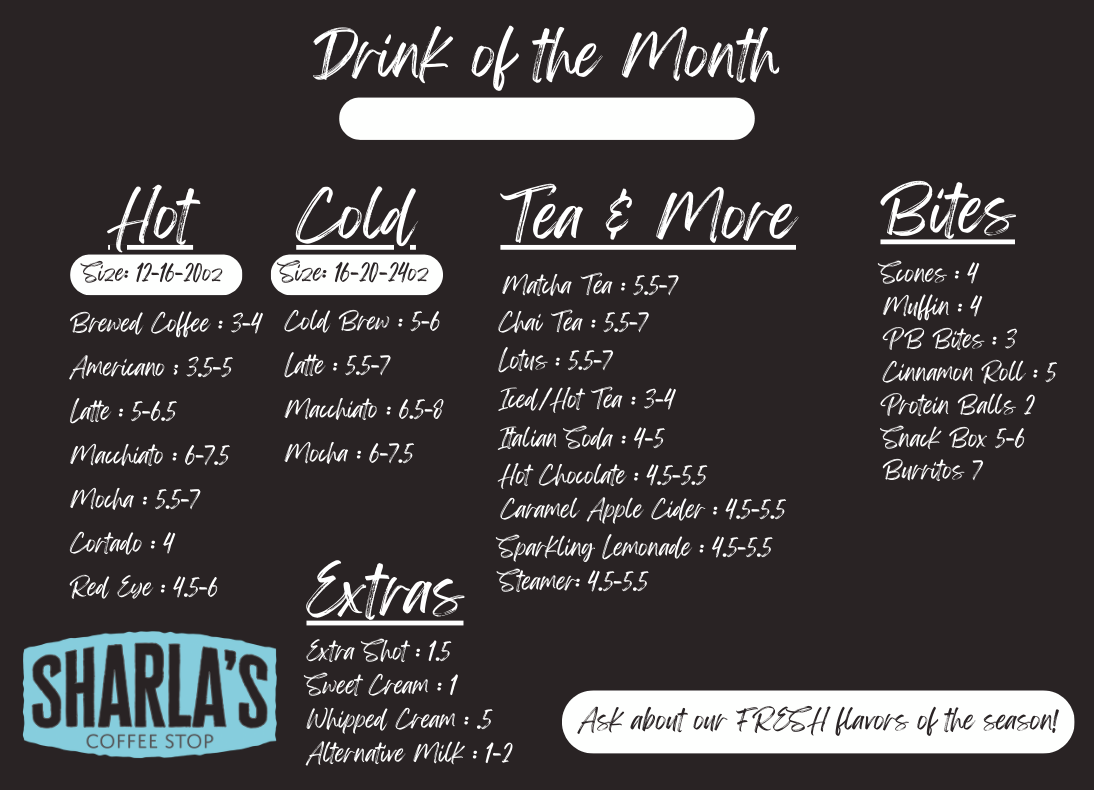 Drink of the Month
Hot
Size: 12-16-20oz
Brewed Coffee : 3-4
Americano : 3.5-5
Latte : 5-6.5
Macchiato : 6-7.5
Mocha : 5.5-7
Cortado : 4
Red Eye : 4.5-6
Cold
Size: 16-20-24oz
Cold Brew : 5-6
Latte : 5.5-7
Macchiato : 6.5-8
Mocha : 6-7.5
Extras
Extra Shot : 1.5
Sweet Cream : 1
Whipped Cream : .5
Alternative Milk : 1-2
Tea & More
Matcha Tea : 5.5-7
Chai Tea : 5.5-7
Lotus : 5.5-7
Iced/Hot Tea : 3-4
Italian Soda : 4-5
Hot Chocolate : 4.5-5.5
Caramel Apple Cider : 4.5-5.5
Sparkling Lemonade : 4.5-5.5
Steamer: 4.5-5.5
Bites
Scones : 4
Muffin : 4
PB Bites : 3
Cinnamon Roll : 5
Protein Balls 2
Snack Box 5-6
Burritos 7
SHARLA'S
COFFEE STOP
Ask about our FRESH flavors of the season!